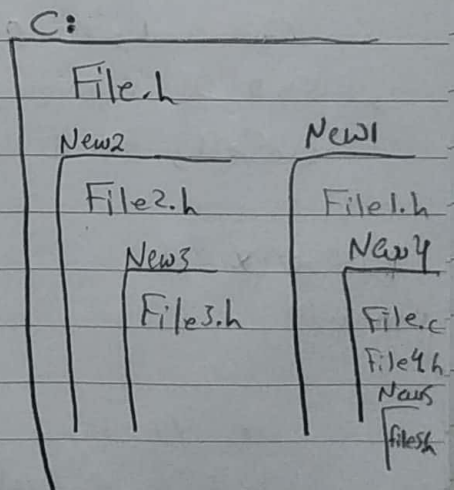 C:
File.h
New2
File2.h
New3
File3.h
New1
File1.h
New4
File.c
File4.h
New5
file5.h